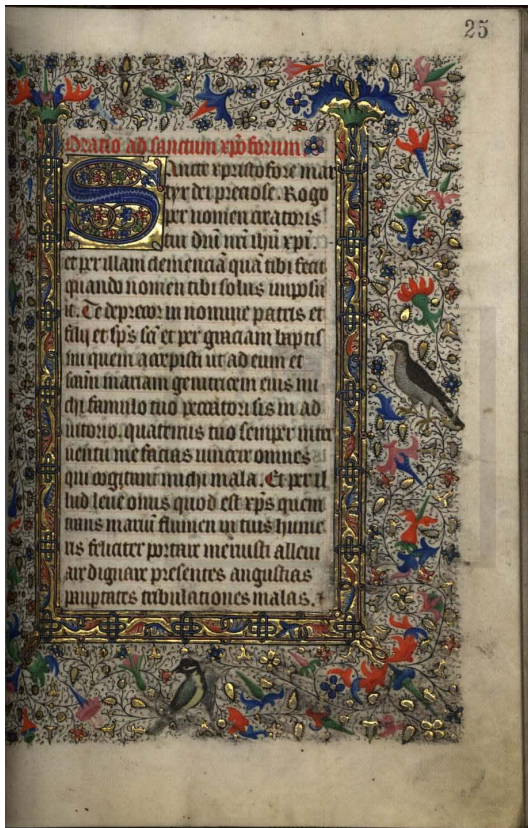 25
Oratio ad sanctum xpōforum
Sancte xpristofore mar
tyr dei preciose. Rogo
per nomen creatoris
tui dn̄i nr̄i ihū xpi.
et per illam clemenciā quā tibi fecit
quando nomen tibi solus imposu
it. Te deprecor in nomine patris et
filij et sp̄s sc̄i et per graciam baptis
mi quem accepisti ut ad eum et
sc̄am mariam genitricem eius mi
chi famulo tuo peccatori sis in ad
iutorio. quatenus tuo semper inter
uentu me facias uincere omnes
qui cogitant michi mala. Et per il
lud leue onus quod est xp̄s quem
trans marinū flumen in tuis hume
ris feliciter portare meruisti alleui
are dignare presentes angustias
paupertates tribulationes malas.